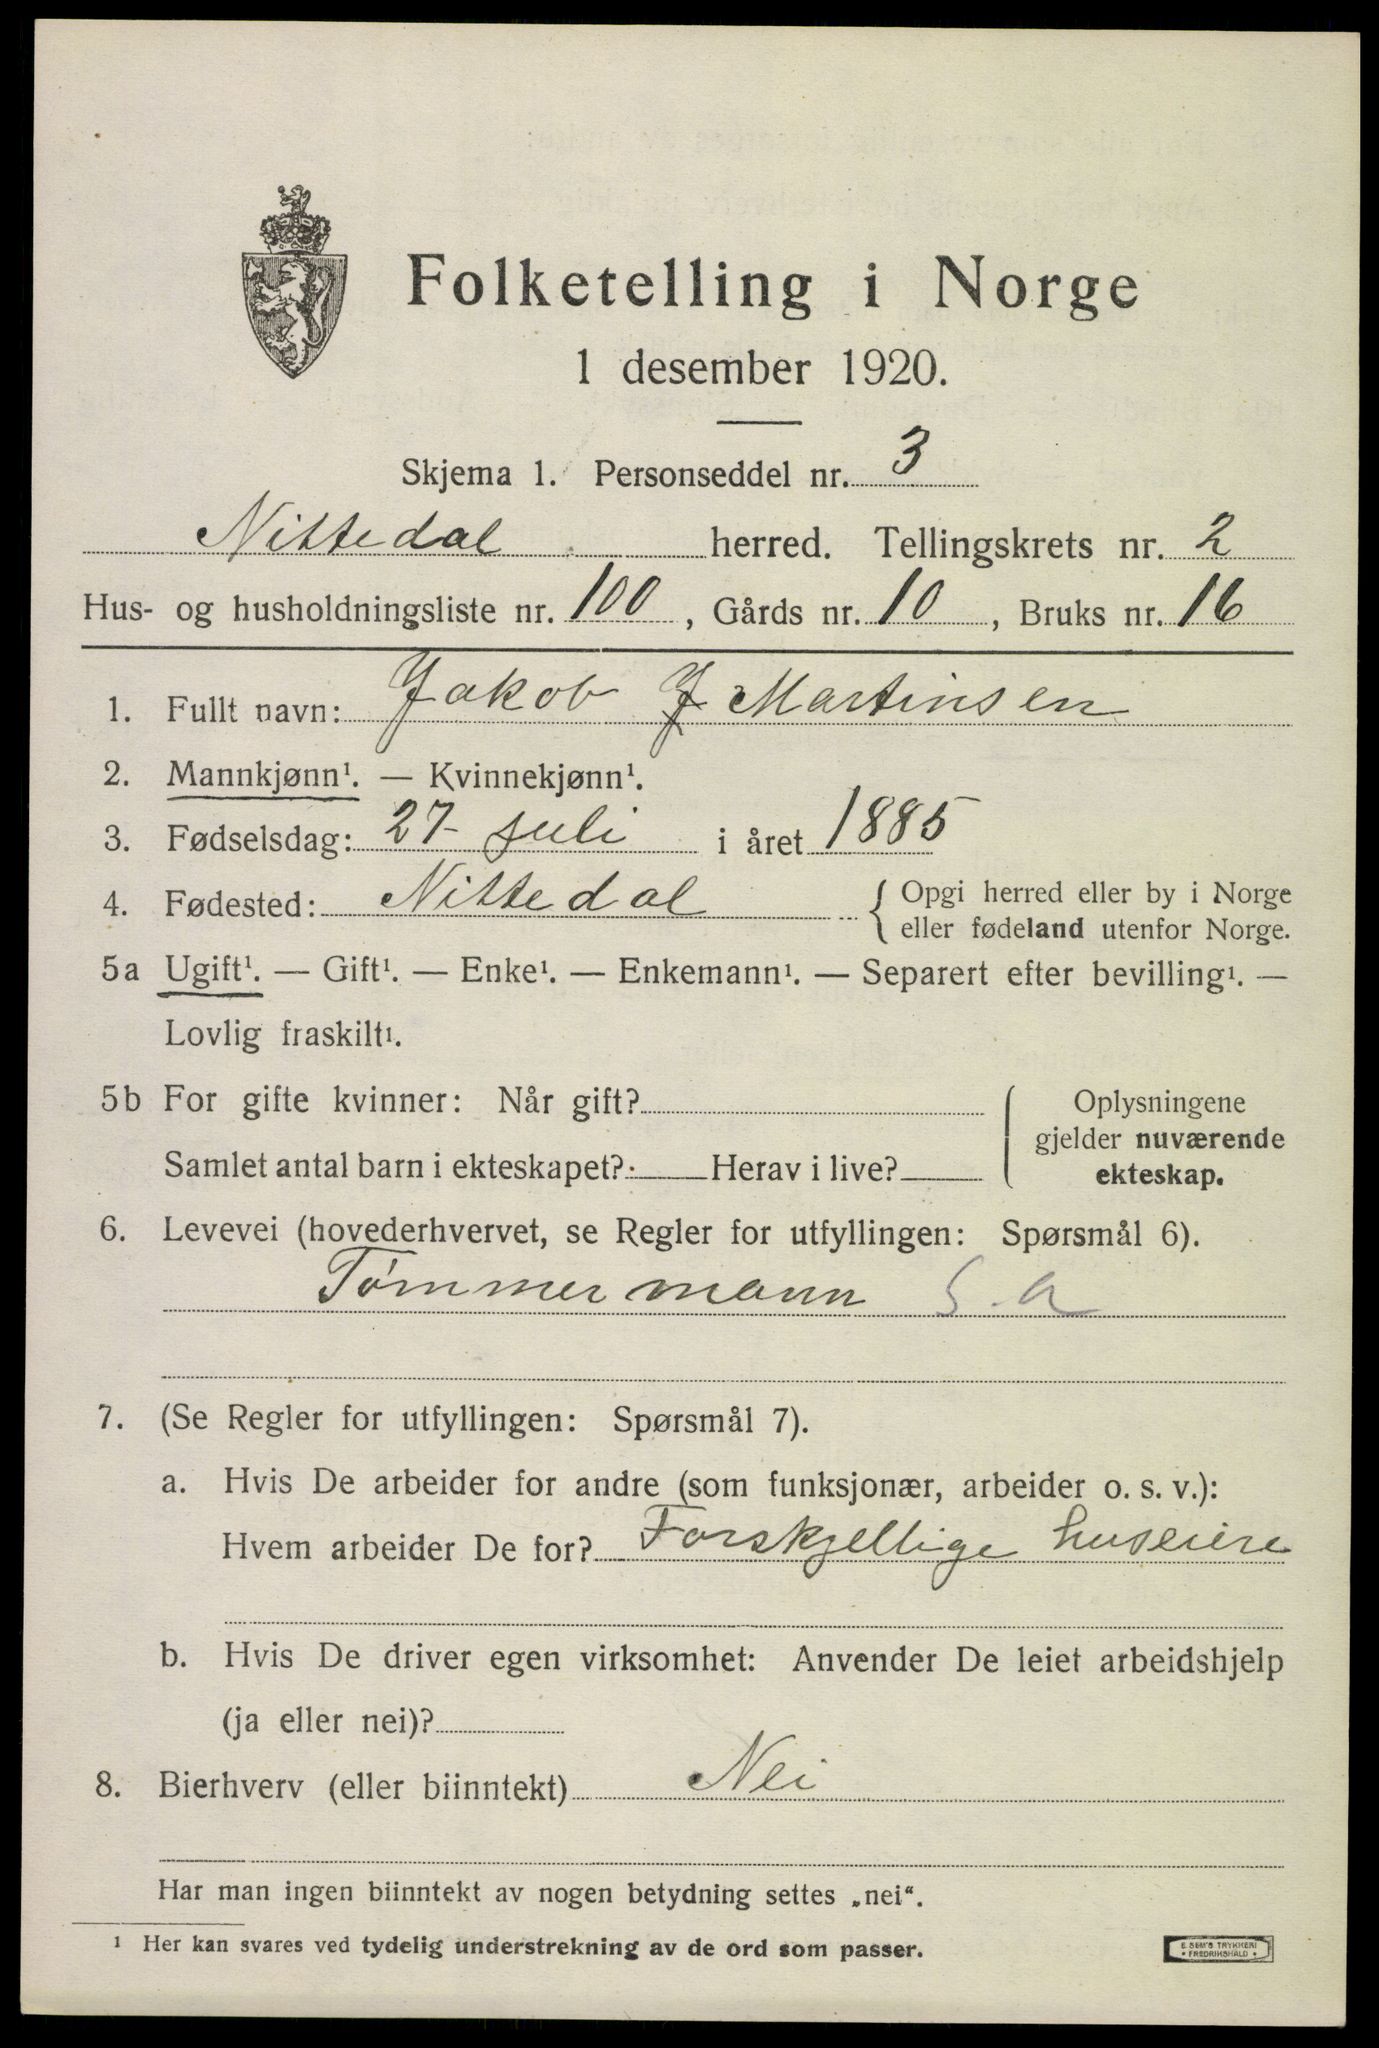 Folketelling i Norge
1 desember 1920.
Skjema 1. Personseddel nr. 3
Nittedal herred. Tellingskrets nr. 2
Hus- og husholdningsliste nr. 100, Gårds nr. 10, Bruks nr. 16
1. Fullt navn: Jakob J Martinsen
2. Mannkjønn¹. — Kvinnekjønn¹.
3. Fødselsdag: 27 juli i året 1885
4. Fødested: Nittedal { Opgi herred eller by i Norge
eller fødeland utenfor Norge.
5a Ugift¹. — Gift¹. — Enke¹. — Enkemann¹. — Separert efter bevilling¹. —
Lovlig fraskilt¹.
5b For gifte kvinner: Når gift?
Samlet antal barn i ekteskapet? Herav i live?
Oplysningene
gjelder nuværende
ekteskap.
6. Levevei (hovederhvervet, se Regler for utfyllingen: Spørsmål 6).
Tømmermann S. A
7. (Se Regler for utfyllingen: Spørsmål 7).
a. Hvis De arbeider for andre (som funksjonær, arbeider o. s. v.):
Hvem arbeider De for? Forskjellige huseiere
b. Hvis De driver egen virksomhet: Anvender De leiet arbeidshjelp
(ja eller nei)?
8. Bierhverv (eller biinntekt) Nei
Har man ingen biinntekt av nogen betydning settes „nei“.
¹ Her kan svares ved tydelig understrekning av de ord som passer.
E. SEM'S TRYKKERI
• FREDRIKSHALD •